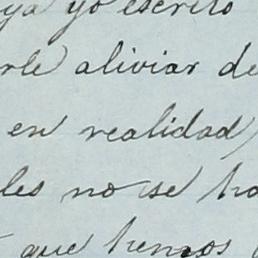 ya yo escrito
rle aliviar de
en realidad,
les no se ha
que hemos